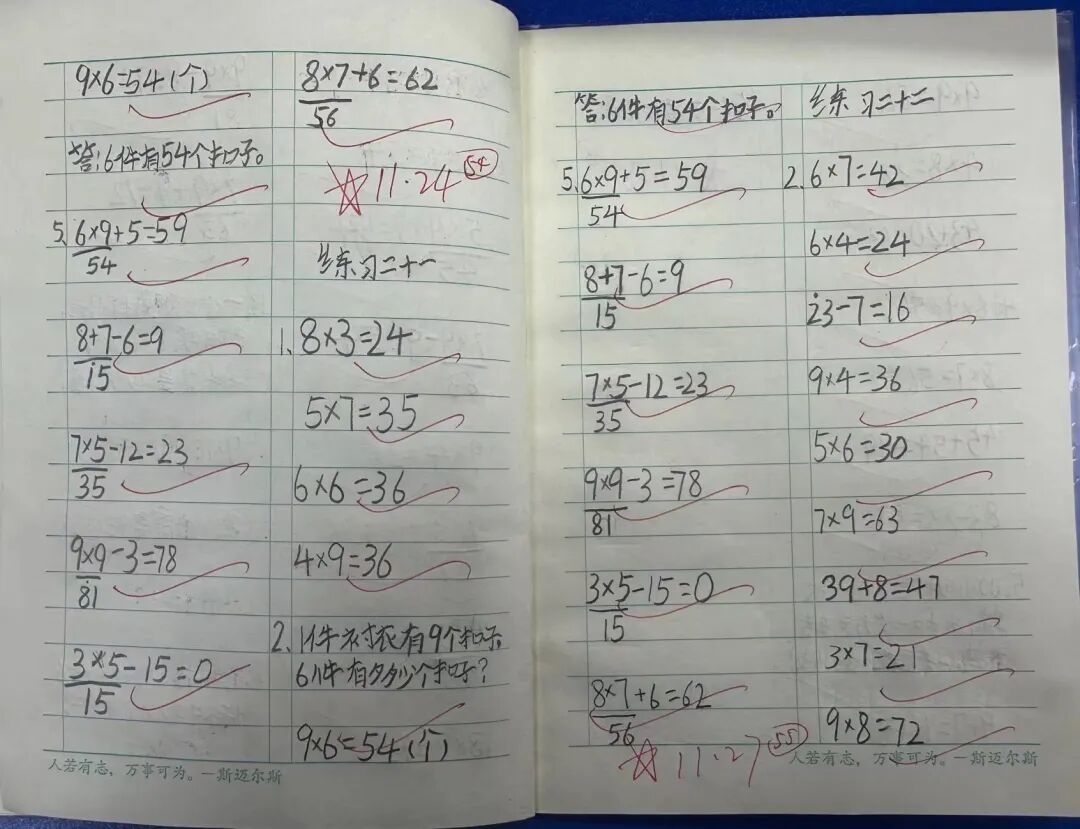 9×6=54(个)
答:6件有54个扣子。
5. 6×9+5=59
54
8+7-6=9
15
7×5-12=23
35
9×9-3=78
81
3×5-15=0
15
人若有志，万事可为。—斯迈尔斯
8×7+6=62
56
☆11.24 54
练习二十一
1. 8×3=24
5×7=35
6×6=36
4×9=36
2. 1件衬衣有9个扣子,
6件有多少个扣子?
9×6=54(个)
答:6件有54个扣子。
5. 6×9+5=59
54
8+7-6=9
15
7×5-12=23
35
9×9-3=78
81
3×5-15=0
15
8×7+6=62
56
☆11.27 55
练习二十二
2. 6×7=42
6×4=24
23-7=16
9×4=36
5×6=30
7×9=63
39+8=47
3×7=21
9×8=72
人若有志，万事可为。—斯迈尔斯